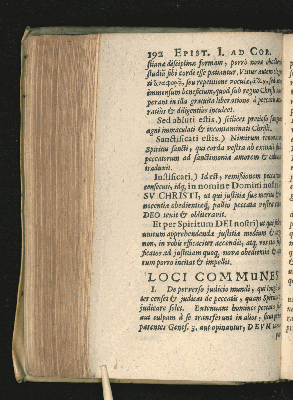 192 EPIST. I. AD COR.
stianæ disciplinæ formam, porrò novæ obedientiæ
studiũ sibi cordæ esse patiantur. Vtitur autem
seu repetitione vocula,
immensum beneficium, quod sub regno Christi
perant in illa gratuita liberatione à peccatis
ratiùs & diligentiùs inculcet.
Sed abluti estis.) scilicet precioso sanguine
agni immaculati & incontaminati Christi.
Sanctificati estis.) Nimirum
Spiritu sancti, qui corda vestra ab
peccatorum ad sanctimoniæ amorem &
traduxit.
Iustificati.) Id est, remissionem peccatorum
consecuti, idq; in nomine Domini nostri
SV CHRISTI, ut qui justitia suæ
nocentiæ obedientiæq; pallio peccata vestra
DEO texit & obliteravit.
Et per Spiritum DEI nostri) ut qui
unicum apprehendenda justitiæ medium &
non, in vobis efficaciter accendit, atq;
ficatos ad justitiam quoq; novæ obedientiæ &
rum porrò incitat & impellit.
LOCI COMMUNES
1. De perverso judicio mundi, qui
ter censes & judicas de peccatis, quam Spiritus
judicare solet. Extenuant homines peccata
aut culpam à se transferunt in alios,
parentes Genes. 3. aut opinantur, DEUM